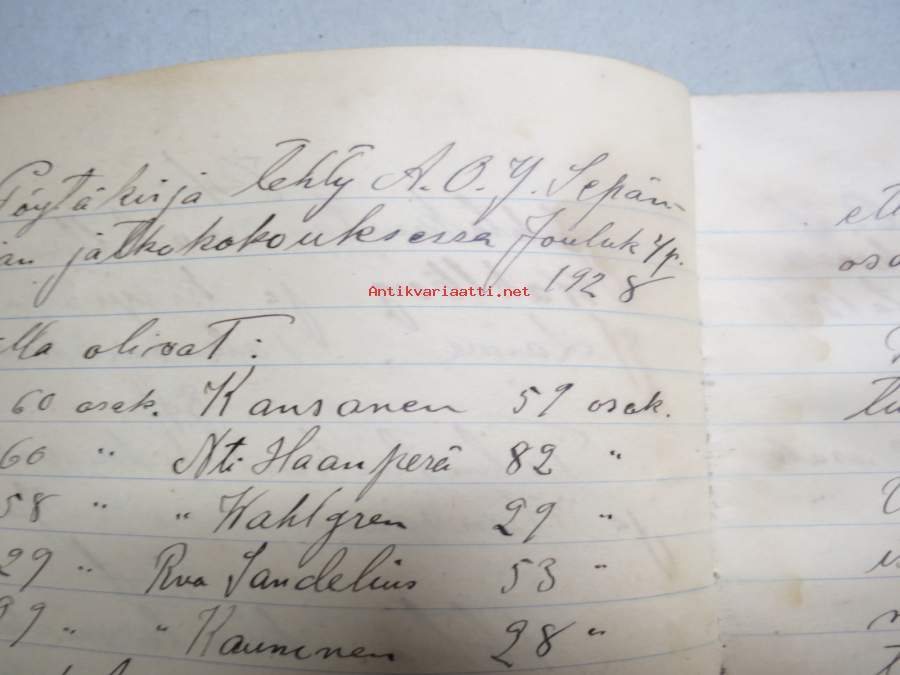 Pöytäkirja tehty A. O. Y. Sepän-
jatkokokouksessa Jouluk 4 p.
1928
Antikvariaatti.net
olivat:
60 osak. Kansanen 59 osak.
60 " Nti Haanperä 82 "
58 " " Wahlgren 29 "
29 " Rva Sandelius 53 "
" " Kauninen 28 "
osa